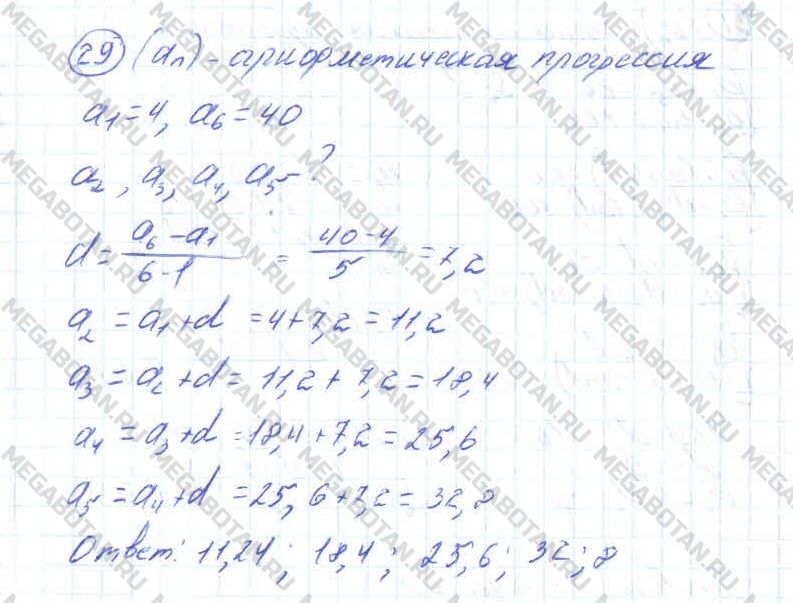 29 (aₙ) - арифметическая прогрессия
a₁=4, a₆=40
a₂, a₃, a₄, a₅-?
d = (a₆-a₁)/(6-1) = (40-4)/5 = 7,2
a₂ = a₁+d = 4+7,2 = 11,2
a₃ = a₂+d = 11,2+7,2 = 18,4
a₄ = a₃+d = 18,4+7,2 = 25,6
a₅ = a₄+d = 25,6+7,2 = 32,8
Ответ: 11,24; 18,4; 25,6; 32;8
MEGABOTAN.RU